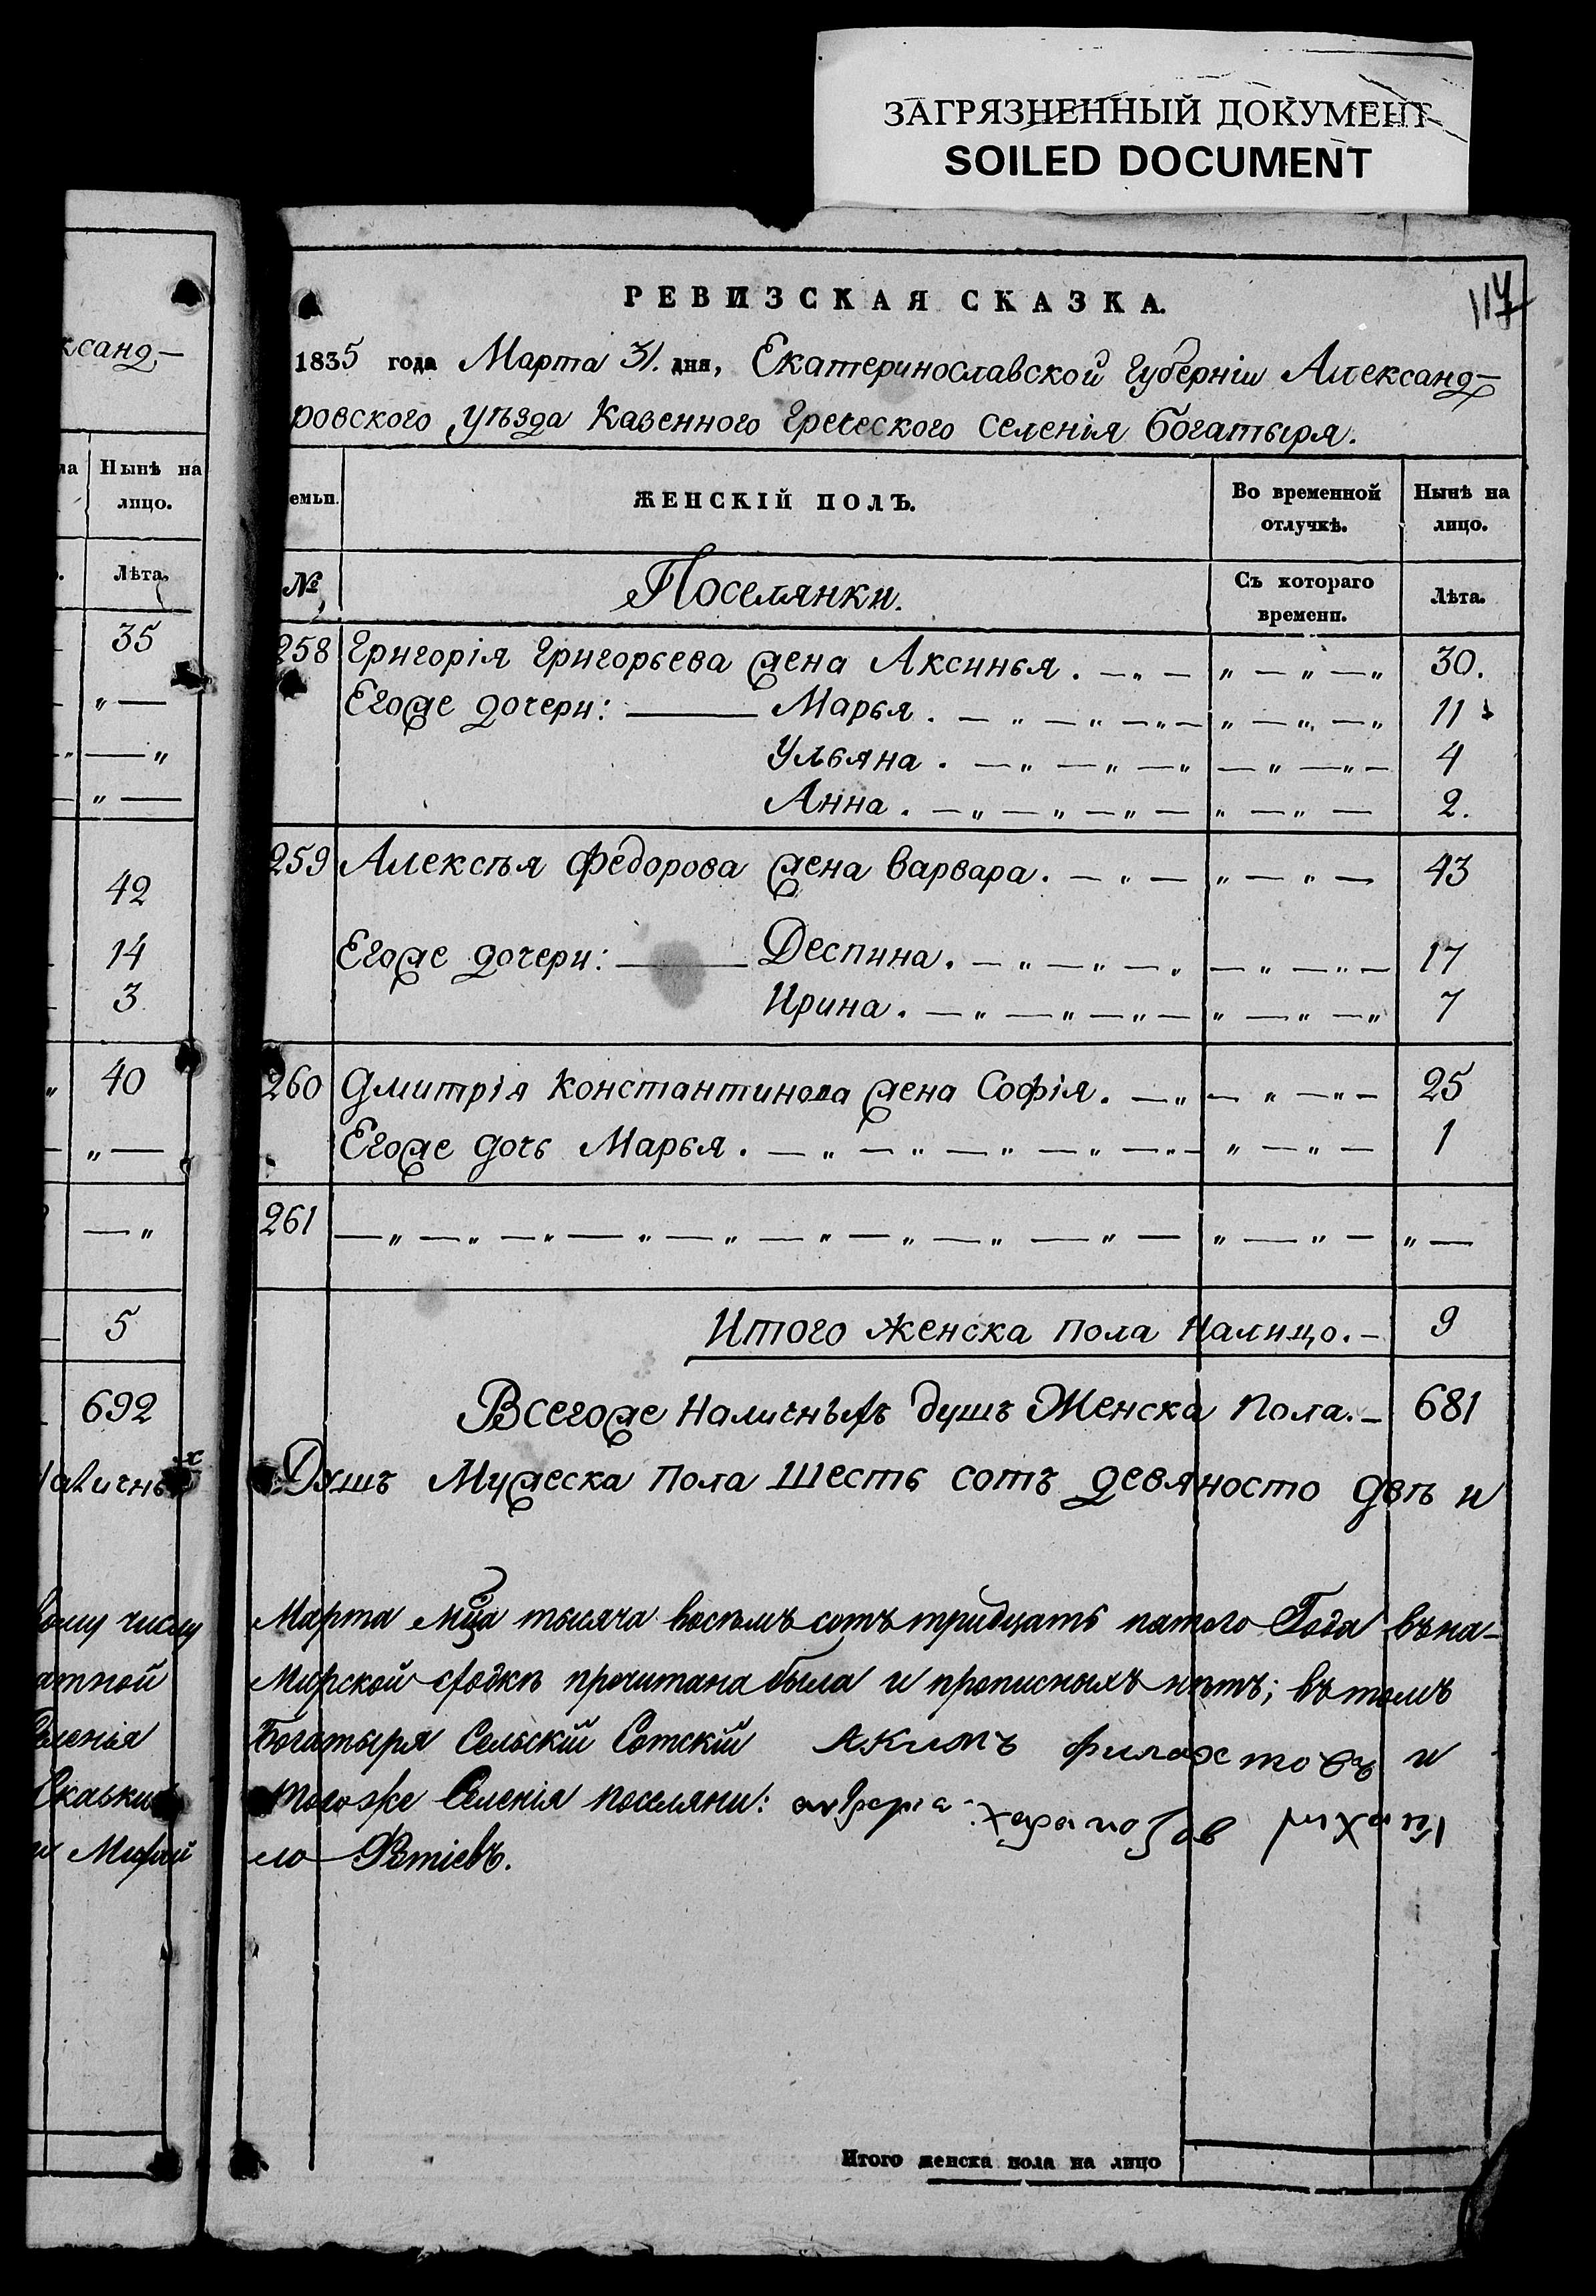 ЗАГРЯЗНЕННЫЙ ДОКУМЕНТ
SOILED DOCUMENT
ксанд-
Нынѣ на
лицо.
Лѣта.
35
„ —
— „
„ —
42
14
3
40
„ —
— „
5
692
числу
Скаски
РЕВИЗСКАЯ СКАЗКА.
117
1835 года Марта 31. дня, Екатеринославской Губерніи Александ-
ровского уѣзда Казенного Греческого Селенія Богатыря.
емьи. ЖЕНСКІЙ ПОЛЪ. Во временной отлучкѣ. Нынѣ на лицо.
№ Поселянки. Съ котораго времени. Лѣта.
258 Григорія Григорьева жена Аксинья. — „ — „ — „ — „ 30.
Егоже дочери: — Марья. — „ — „ — „ — „ — „ — „ 11
Ульяна. — „ — „ — „ — „ — „ — 4
Анна. — „ — „ — „ — „ — „ — 2.
259 Алексѣя Федорова жена Варвара. — „ — „ — „ — 43
Егоже дочери: — Деспина. — „ — „ — „ — „ — „ — 17
Ирина. — „ — „ — „ — „ — „ — „ 7
260 Дмитрія Константинова жена Софія. — „ — „ — „ — 25
Егоже дочь Марья. — „ — „ — „ — „ — „ — „ — „ — 1
261 — „ — „ — „ — „ — „ — „ — „ — „ — „ — „ — „ — „ —
Итого женска пола Налицо. — 9
Всегоже Наличныхъ душъ Женска Пола. — 681
Душъ Мужеска Пола шесть сотъ девяносто двѣ и
Марта мца тысяча восѣмъ сотъ тридцать пятого Года въ на-
Мирской сходкѣ прочитана была и прописныхъ нѣтъ; въ томъ
Богатыря Сельскій Сотскій Акимъ и
Того же Селенія поселяни:
ло
Итого женска пола на лицо